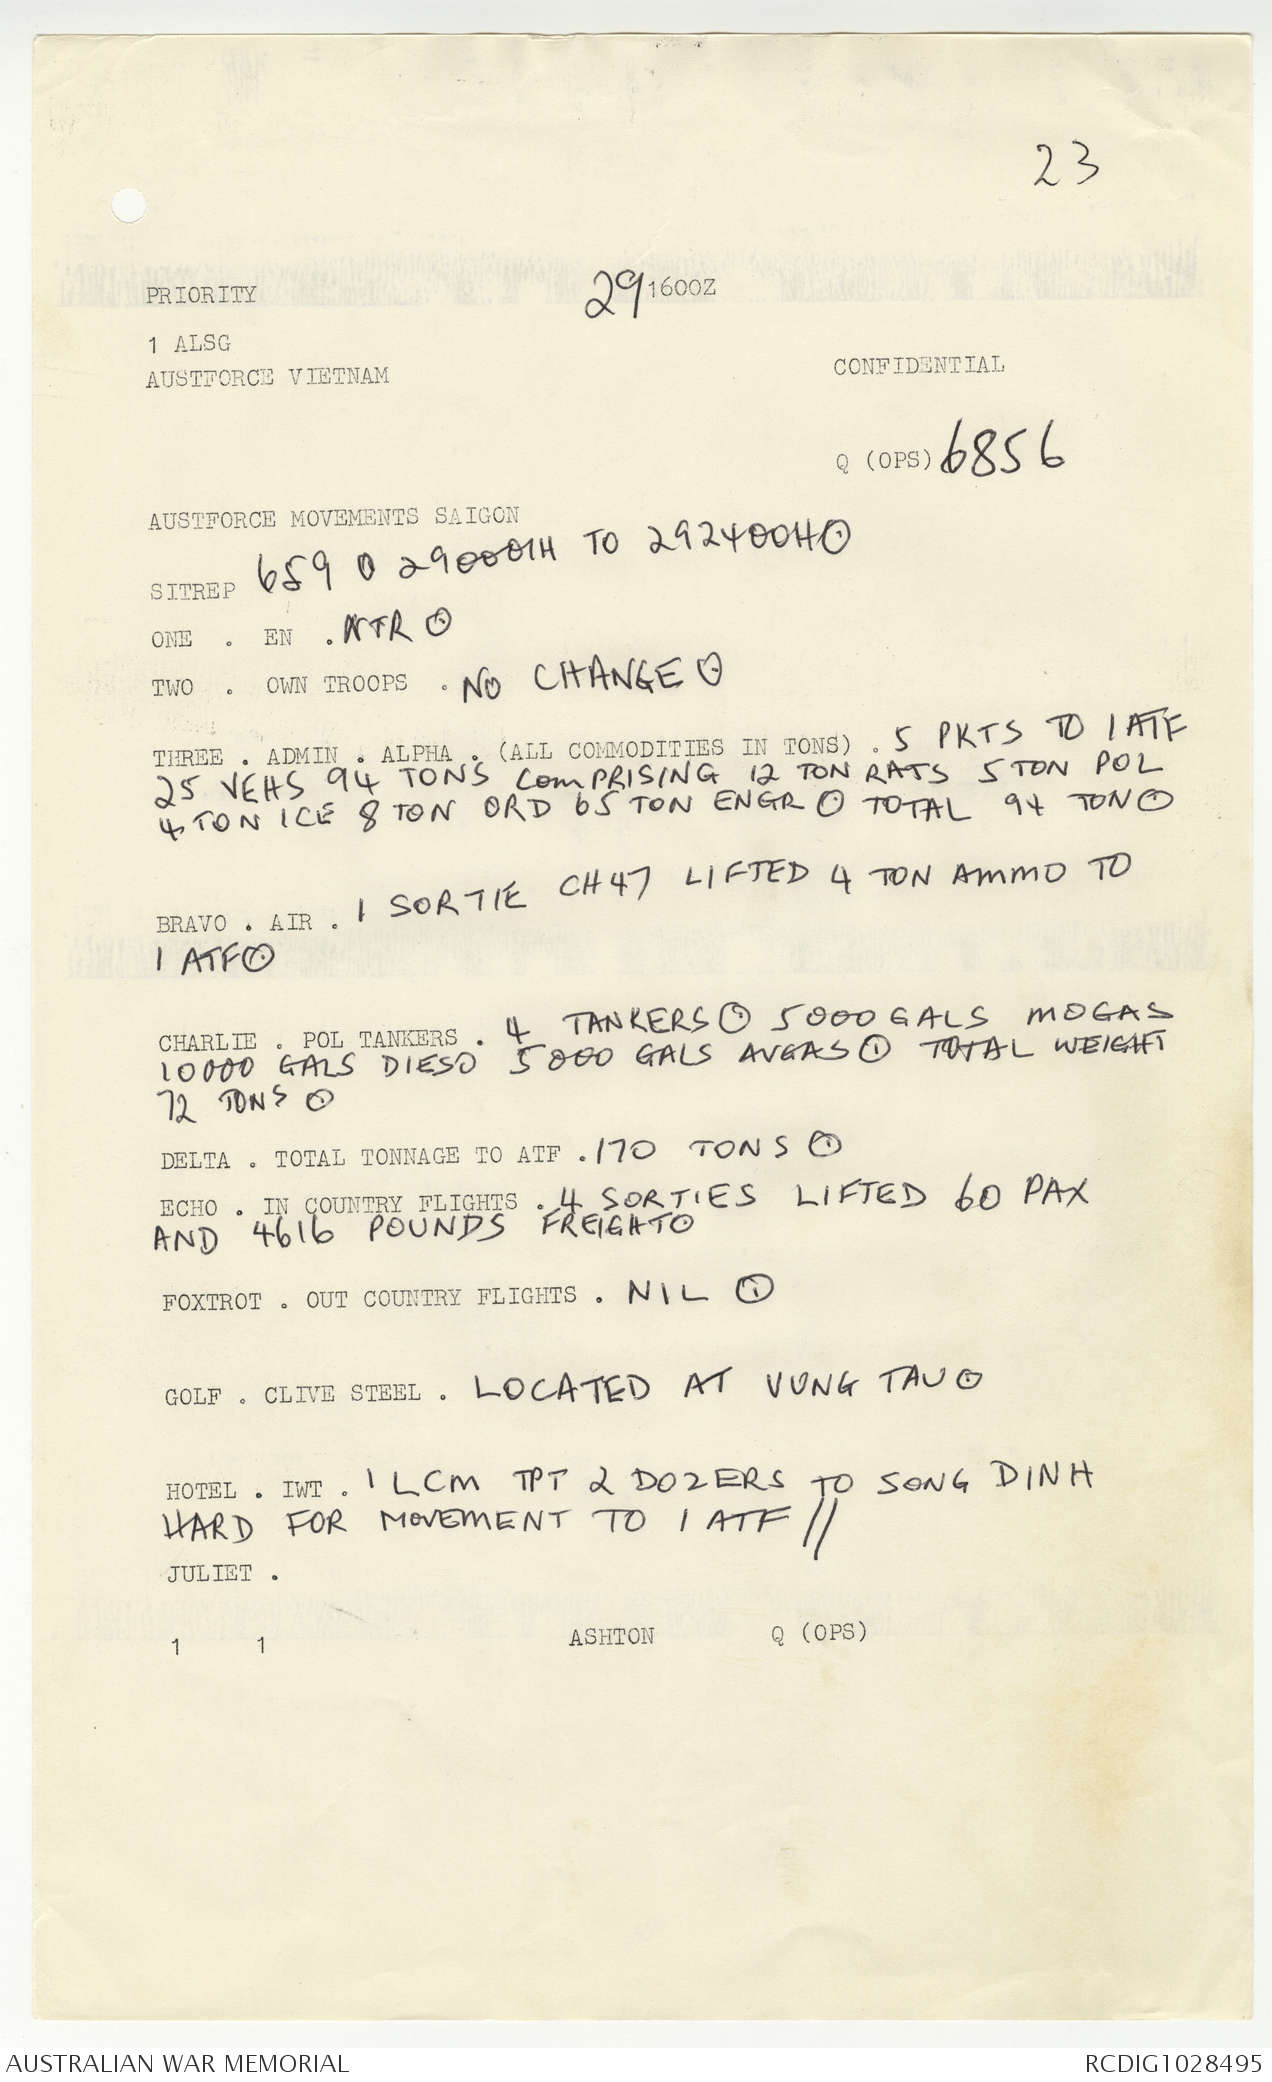 23
PRIORITY 291600Z
1 ALSG
AUSTFORCE VIETNAM
CONFIDENTIAL
Q (OPS) 6856
AUSTFORCE MOVEMENTS SAIGON
SITREP 659 ⊙ 290001H TO 292400H⊙
ONE . EN . NTR ⊙
TWO . OWN TROOPS . NO CHANGE ⊙
THREE . ADMIN . ALPHA . (ALL COMMODITIES IN TONS) . 5 PKTS TO 1 ATF
25 VEHS 94 TONS COMPRISING 12 TON RATS 5 TON POL
4 TON ICE 8 TON ORD 65 TON ENGR ⊙ TOTAL 94 TON⊙
BRAVO . AIR . 1 SORTIE CH47 LIFTED 4 TON AMMO TO
1 ATF⊙
CHARLIE . POL TANKERS . 4 TANKERS ⊙ 5000 GALS MOGAS
10000 GALS DIESO 5000 GALS AVGAS ⊙ TOTAL WEIGHT
72 TONS ⊙
DELTA . TOTAL TONNAGE TO ATF . 170 TONS ⊙
ECHO . IN COUNTRY FLIGHTS . 4 SORTIES LIFTED 60 PAX
AND 4616 POUNDS FREIGHT⊙
FOXTROT . OUT COUNTRY FLIGHTS . NIL ⊙
GOLF . CLIVE STEEL . LOCATED AT VUNG TAU ⊙
HOTEL . IWT . 1 LCM TPT 2 DOZERS TO SONG DINH
HARD FOR MOVEMENT TO 1 ATF //
JULIET .
1 1 ASHTON Q (OPS)
AUSTRALIAN WAR MEMORIAL RCDIG1028495